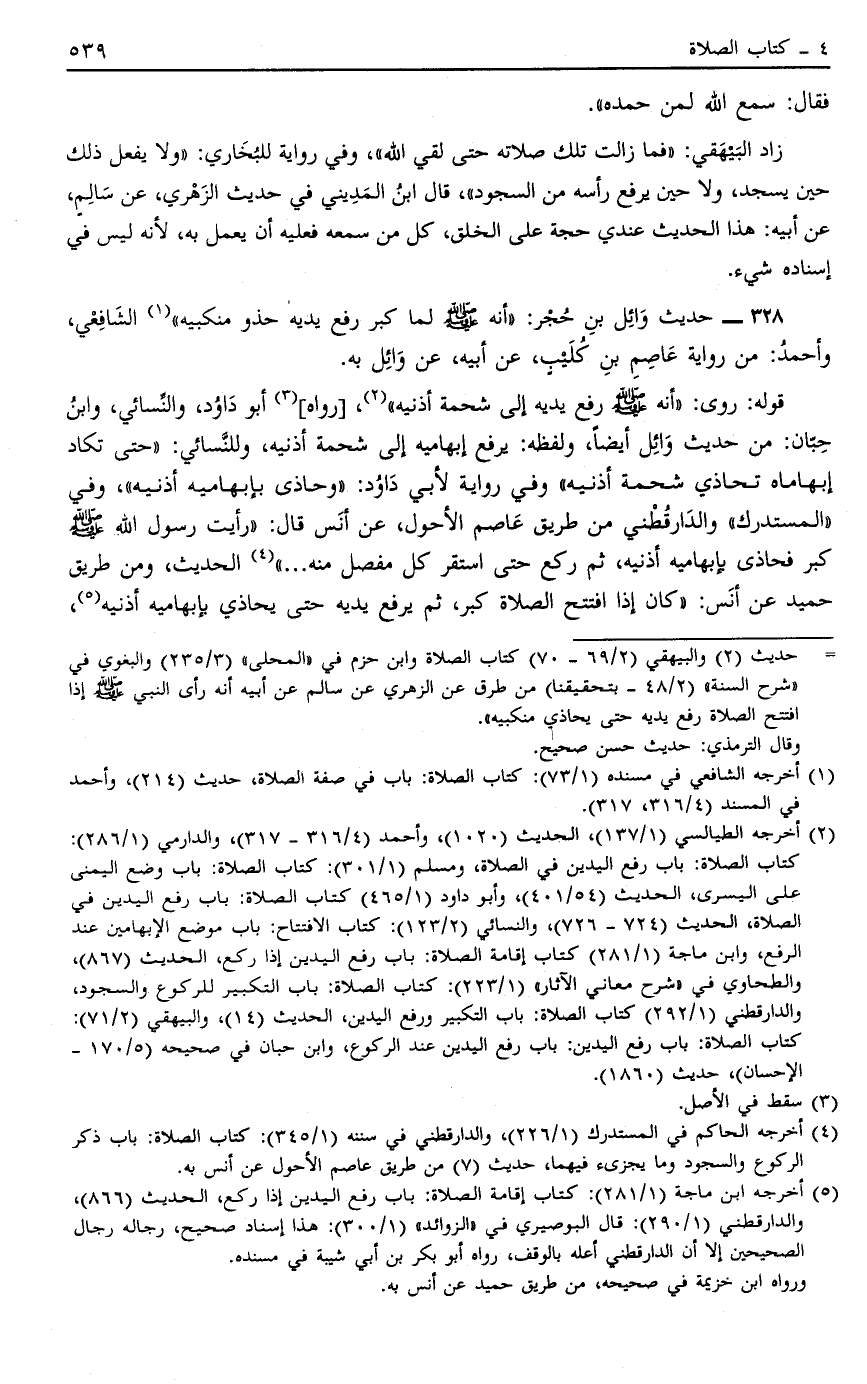 ٤ ـ كتاب الصلاة ٥٣٩
فقال: سمع الله لمن حمده».
زاد البَيْهَقي: «فما زالت تلك صلاته حتى لقي الله»، وفي رواية للبُخَاري: «ولا يفعل ذلك
حين يسجد، ولا حين يرفع رأسه من السجود»، قال ابنُ المَدِيني في حديث الزَهْري، عن سَالِمٍ،
عن أبيه: هذا الحديث عندي حجة على الخلق، كل من سمعه فعليه أن يعمل به، لأنه ليس في
إسناده شيء.
٣٢٨ ـ حديث وَائِل بنِ حُجْر: «أنه ﷺ لما كبر رفع يديه حذو منكبيه»(١) الشَافِعْي،
وأحمدُ: من رواية عَاصِمِ بنِ كُلَيْبٍ، عن أبيه، عن وَائِل به.
قوله: روى: «أنه ﷺ رفع يديه إلى شحمة أذنيه»(٢)، [رواه](٣) أبو دَاوُد، والنِّسائي، وابنُ
حِبّان: من حديث وَائِل أيضاً، ولفظه: يرفع إبهاميه إلى شحمة أذنيه، وللنَّسائي: «حتى تكاد
إبهاماه تحاذي شحمة أذنيه» وفي رواية لأبي دَاوُد: «وحاذى بإبهاميه أذنيه»، وفي
«المستدرك» والدَارقُطْني من طريق عَاصم الأحول، عن أنَس قال: «رأيت رسول الله ﷺ
كبر فحاذى بإبهاميه أذنيه، ثم ركع حتى استقر كل مفصل منه...»(٤) الحديث، ومن طريق
حميد عن أنَس: «كان إذا افتتح الصلاة كبر، ثم يرفع يديه حتى يحاذي بإبهاميه أذنيه(٥)،
= حديث (٢) والبيهقي (٦٩/٢ ـ ٧٠) كتاب الصلاة وابن حزم في «المحلى» (٢٣٥/٣) والبغوي في
«شرح السنة» (٤٨/٢ ـ بتحقيقنا) من طرق عن الزهري عن سالم عن أبيه أنه رأى النبي ﷺ إذا
افتتح الصلاة رفع يديه حتى يحاذي منكبيه».
وقال الترمذي: حديث حسن صحيح.
(١) أخرجه الشافعي في مسنده (٧٣/١): كتاب الصلاة: باب في صفة الصلاة، حديث (٢١٤)، وأحمد
في المسند (٣١٦/٤، ٣١٧).
(٢) أخرجه الطيالسي (١٣٧/١)، الحديث (١٠٢٠)، وأحمد (٣١٦/٤ ـ ٣١٧)، والدارمي (٢٨٦/١):
كتاب الصلاة: باب رفع اليدين في الصلاة، ومسلم (٣٠١/١): كتاب الصلاة: باب وضع اليمنى
على اليسرى، الحديث (٤٠١/٥٤)، وأبو داود (٤٦٥/١) كتاب الصلاة: باب رفع اليدين في
الصلاة، الحديث (٧٢٤ ـ ٧٢٦)، والنسائي (١٢٣/٢): كتاب الافتتاح: باب موضع الإبهامين عند
الرفع، وابن ماجة (٢٨١/١) كتاب إقامة الصلاة: باب رفع اليدين إذا ركع، الحديث (٨٦٧)،
والطحاوي في «شرح معاني الآثار» (٢٢٣/١): كتاب الصلاة: باب التكبير للركوع والسجود،
والدارقطني (٢٩٢/١) كتاب الصلاة: باب التكبير ورفع اليدين، الحديث (١٤)، والبيهقي (٧١/٢):
كتاب الصلاة: باب رفع اليدين: باب رفع اليدين عند الركوع، وابن حبان في صحيحه (١٧٠/٥ ـ
الإحسان)، حديث (١٨٦٠).
(٣) سقط في الأصل.
(٤) أخرجه الحاكم في المستدرك (٢٢٦/١)، والدارقطني في سننه (٣٤٥/١): كتاب الصلاة: باب ذكر
الركوع والسجود وما يجزىء فيهما، حديث (٧) من طريق عاصم الأحول عن أنس به.
(٥) أخرجه ابن ماجة (٢٨١/١): كتاب إقامة الصلاة: باب رفع اليدين إذا ركع، الحديث (٨٦٦)،
والدارقطني (٢٩٠/١): قال البوصيري في «الزوائد» (٣٠٠/١): هذا إسناد صحيح، رجاله رجال
الصحيحين إلا أن الدارقطني أعله بالوقف، رواه أبو بكر بن أبي شيبة في مسنده.
ورواه ابن خزيمة في صحيحه، من طريق حميد عن أنس به.